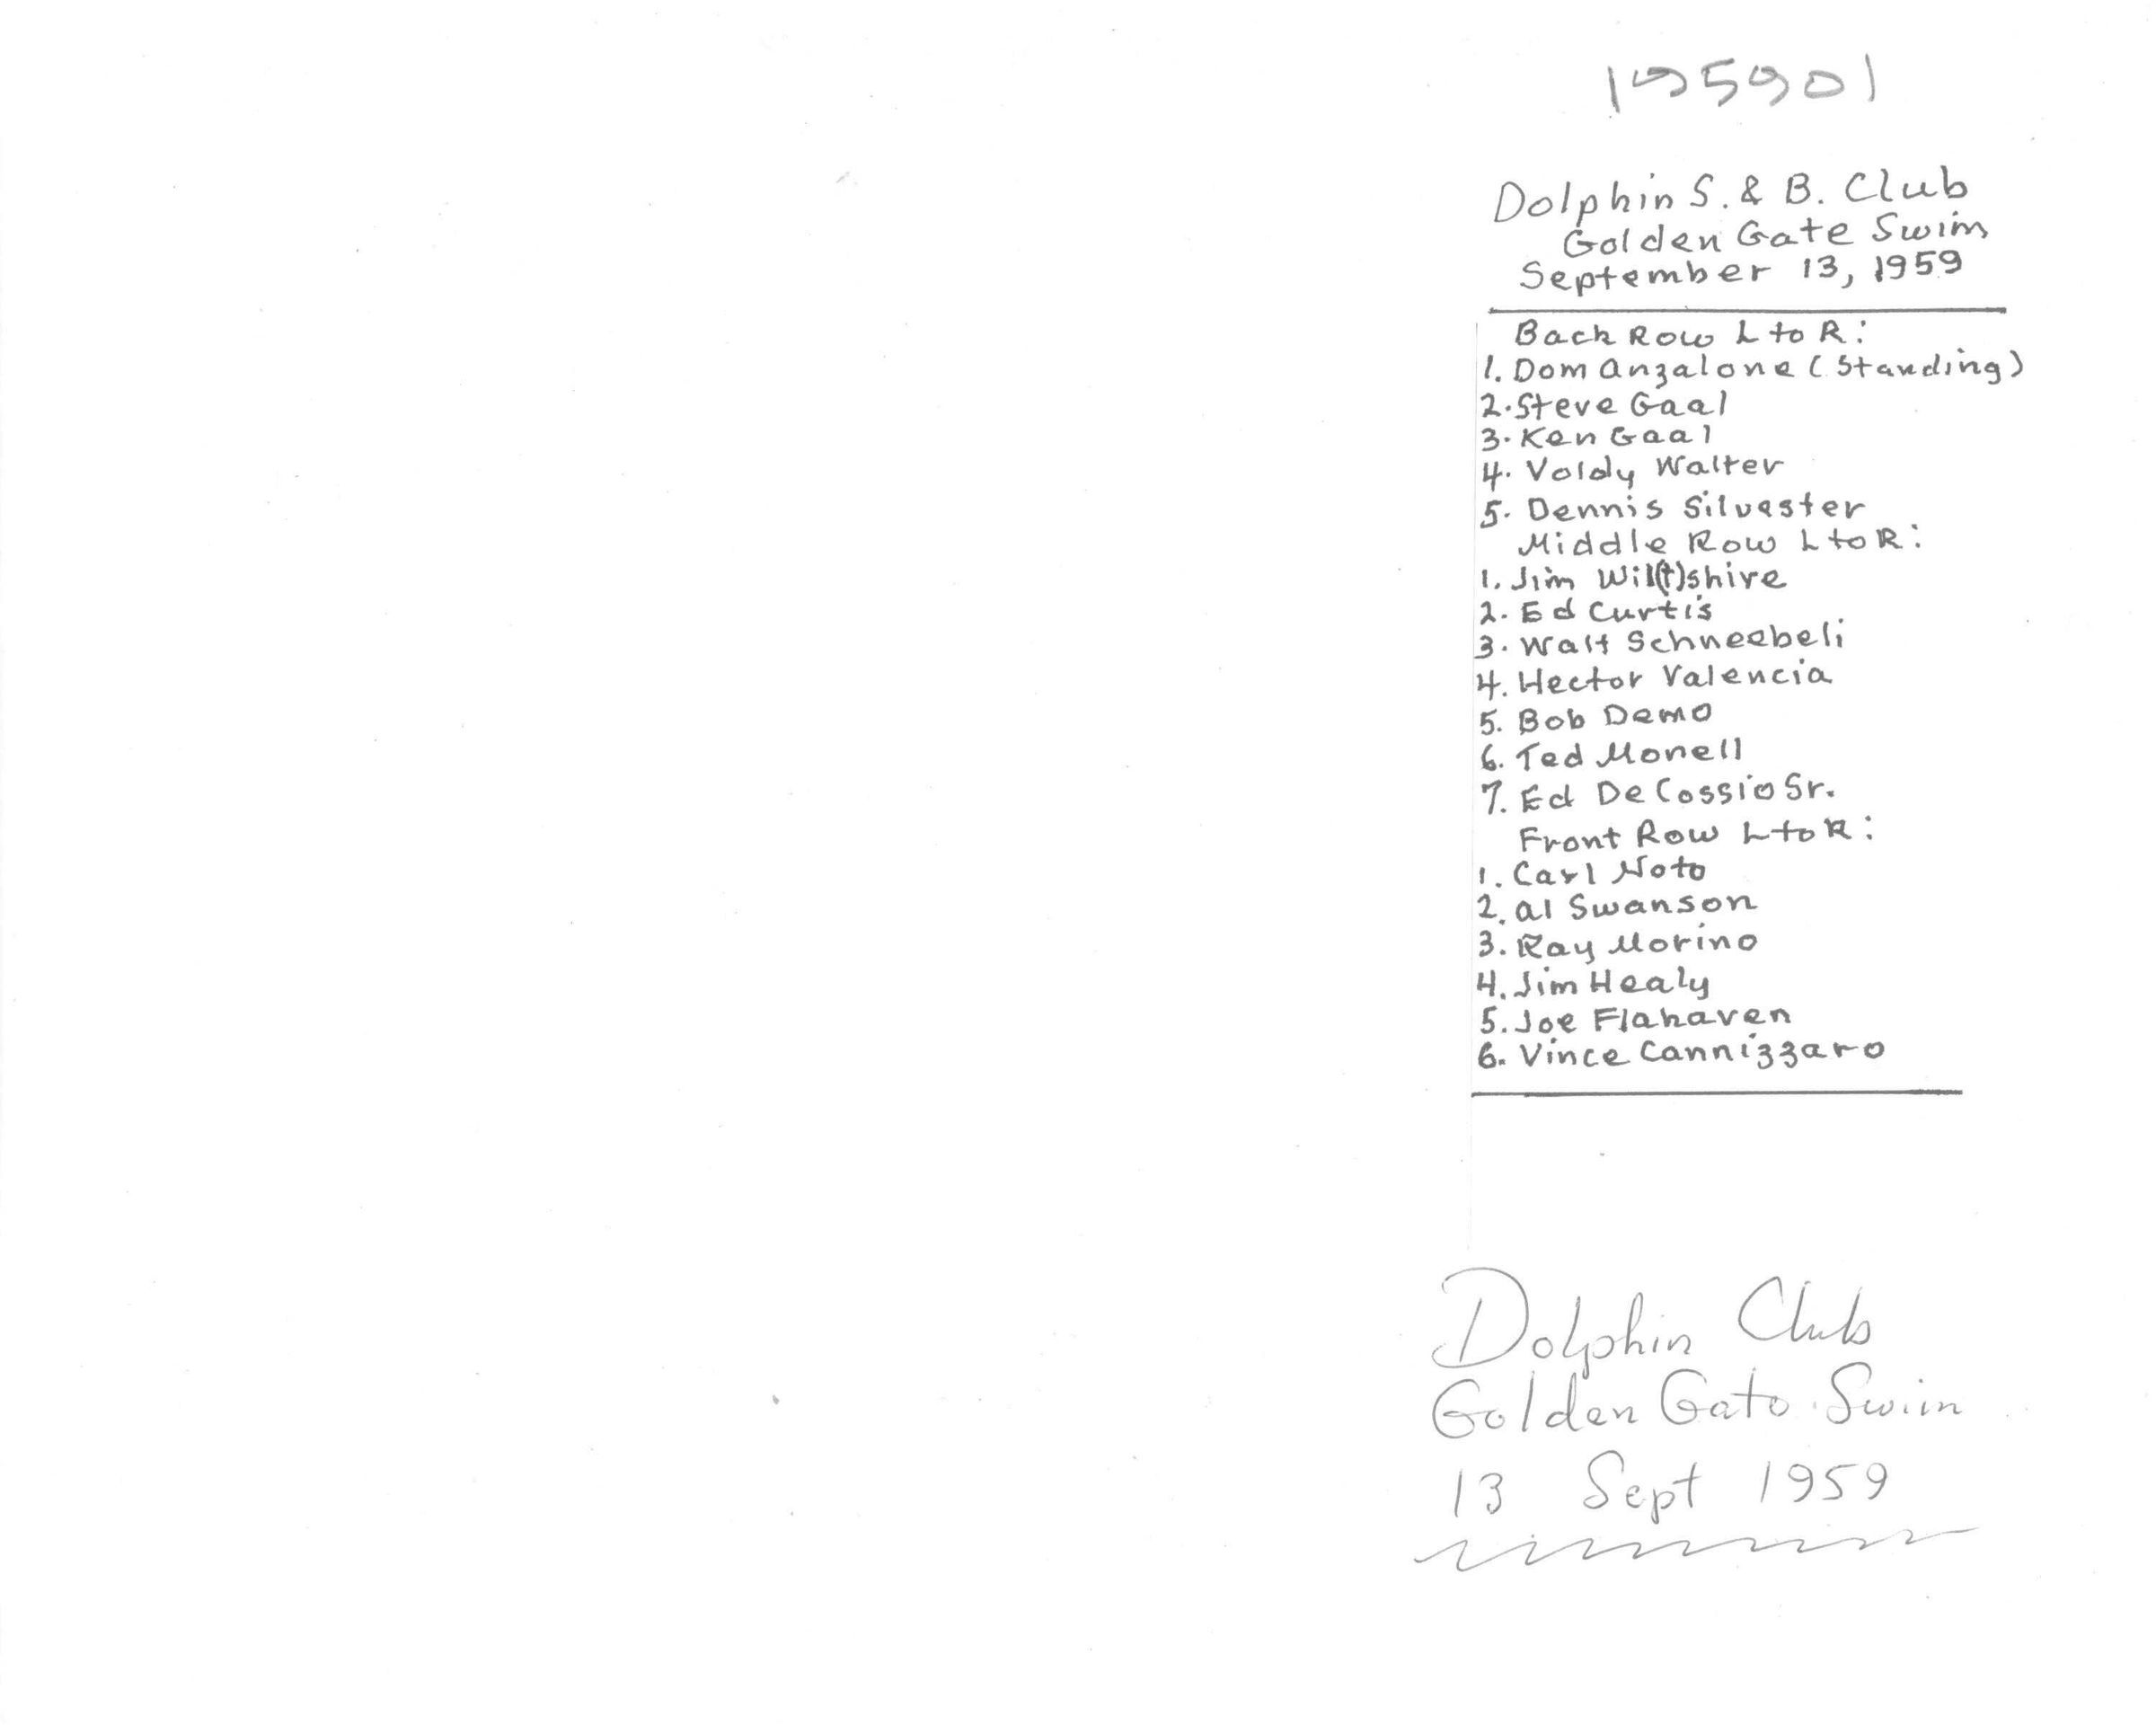 195901
Dolphin S. & B. Club
Golden Gate Swim
September 13, 1959
Back Row L to R:
1. Dom Anzalone (Standing)
2. Steve Gaal
3. Ken Gaal
4. Voldy Walter
5. Dennis Silvester
Middle Row L to R:
1. Jim Wil(t)shire
2. Ed Curtis
3. Walt Schneebeli
4. Hector Valencia
5. Bob Demo
6. Ted Monell
7. Ed De Cossio Sr.
Front Row L to R:
1. Carl Noto
2. Al Swanson
3. Ray Morino
4. Jim Healy
5. Joe Flahaven
6. Vince Cannizzaro
Dolphin Club
Golden Gate Swim
13 Sept 1959